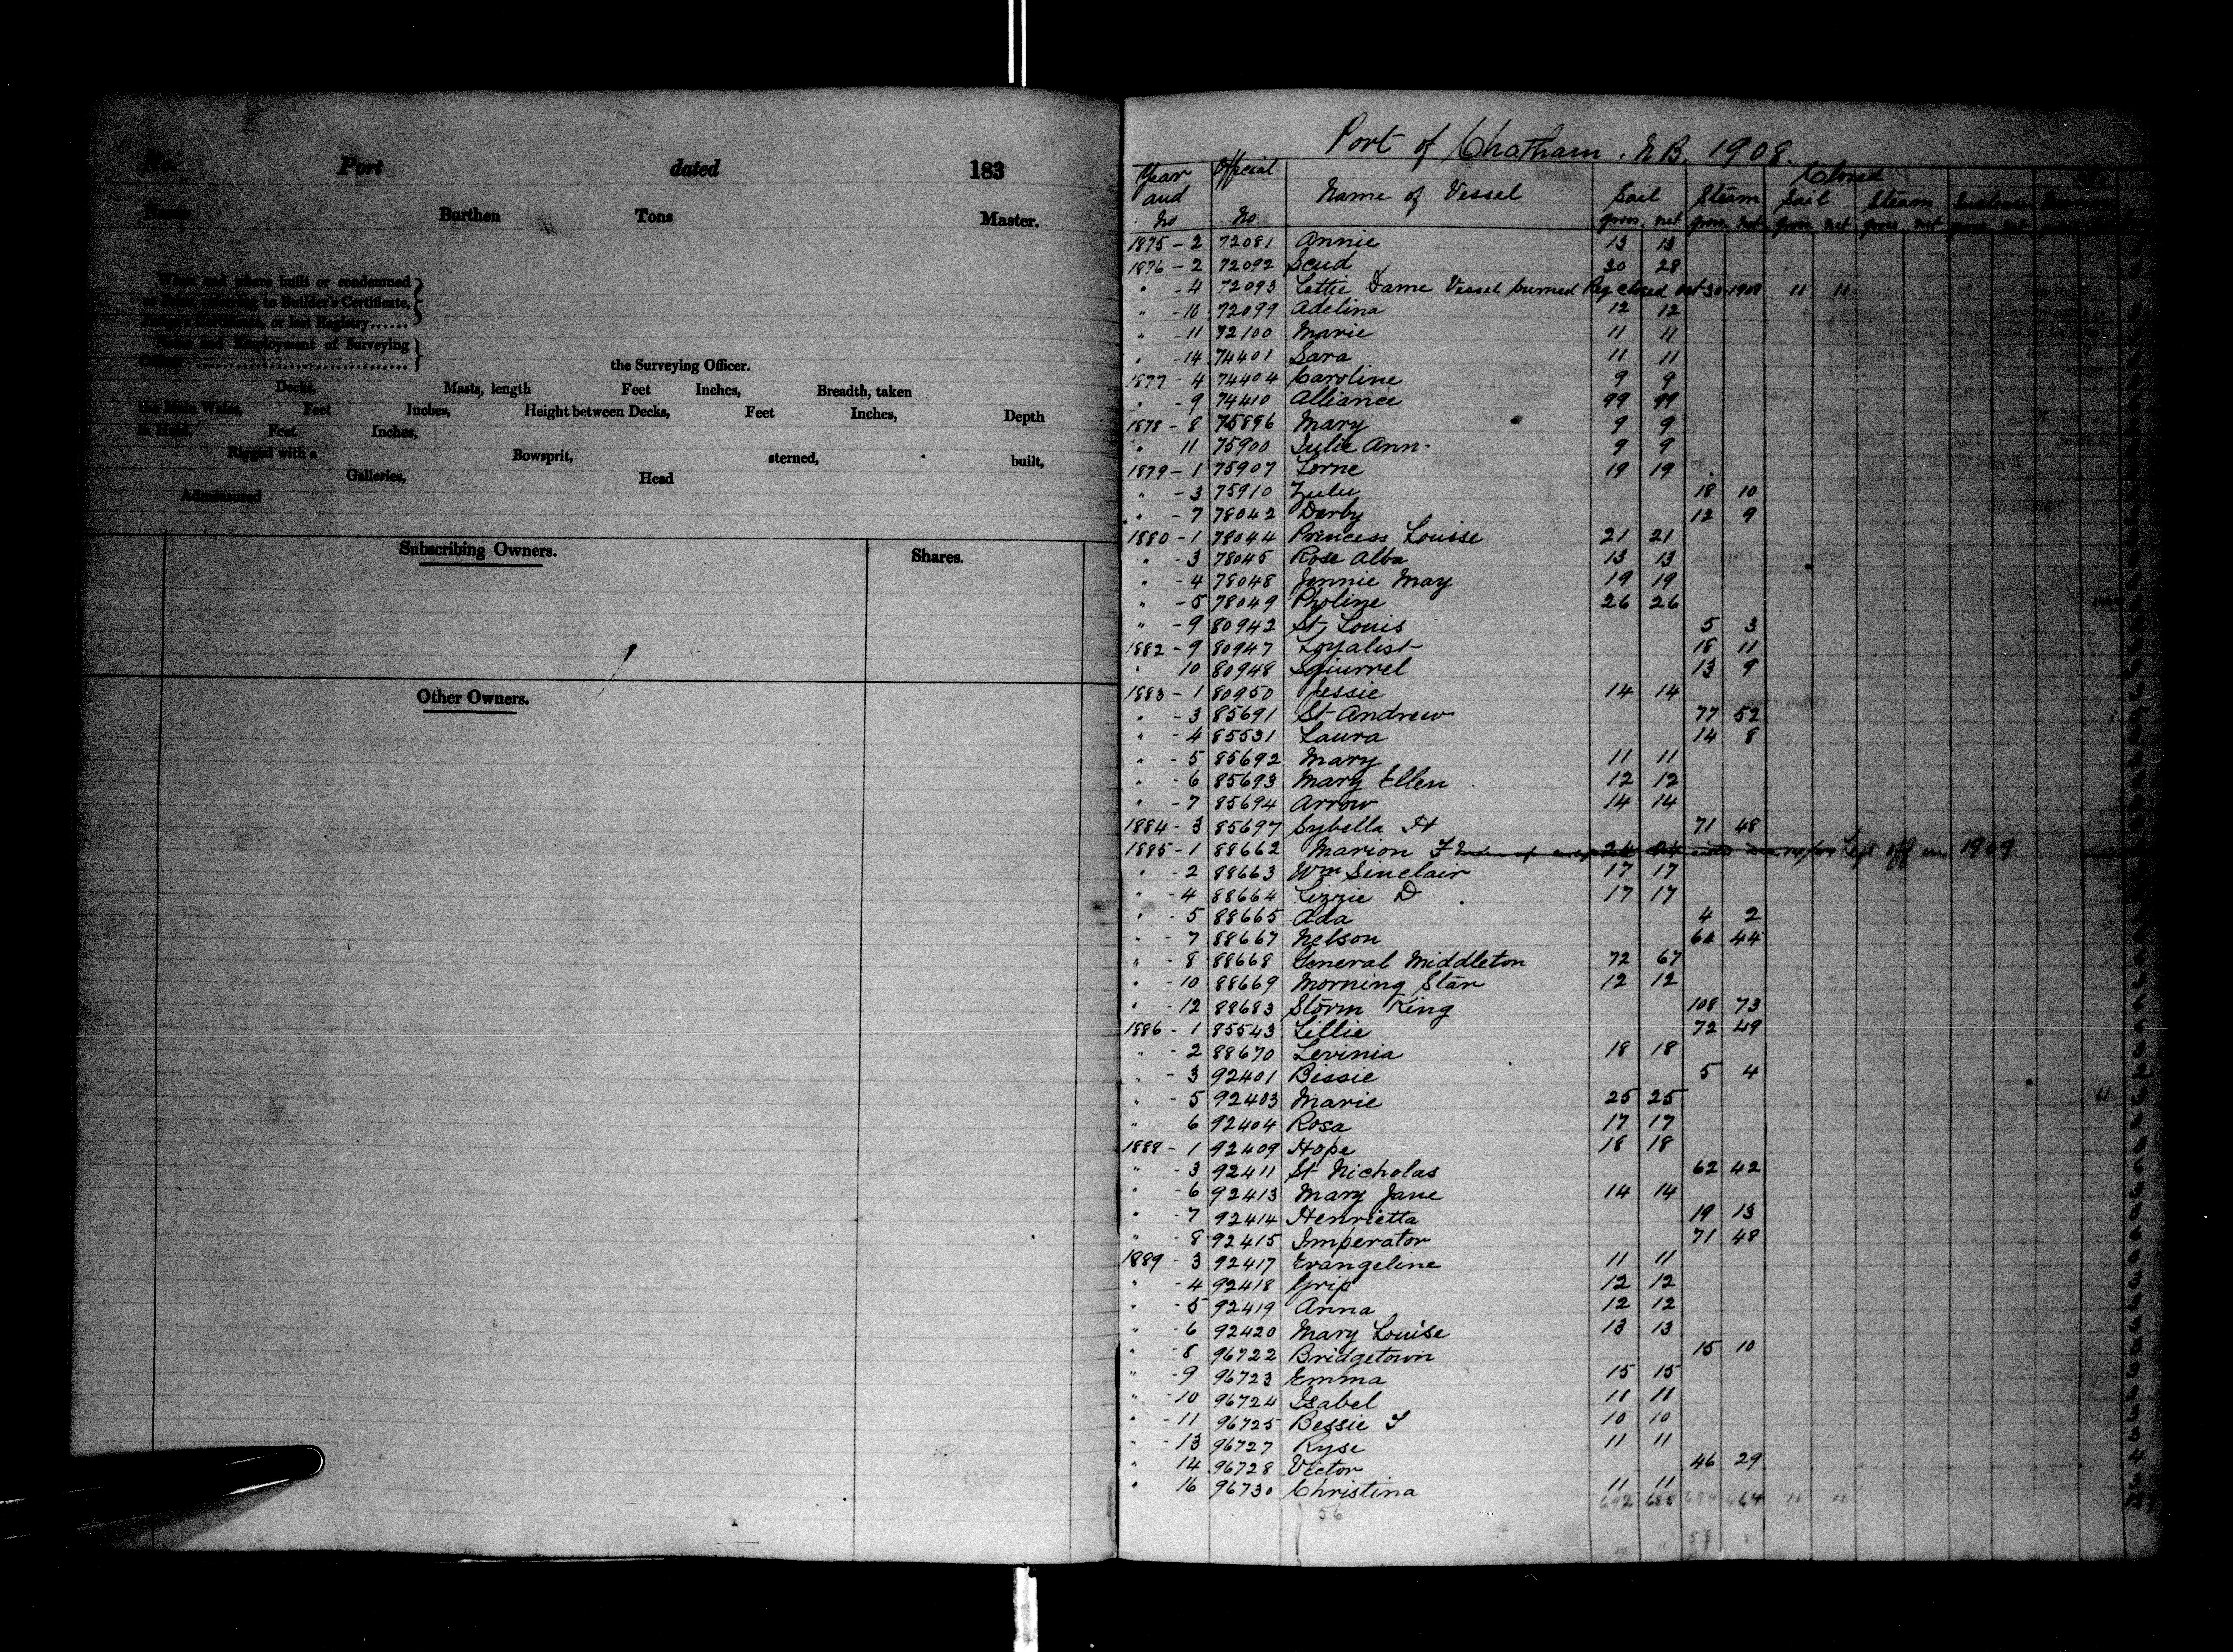 No. Port dated 183
Name Burthen Tons Master.
When and where built or condemned
as Prize, referring to Builder's Certificate,
Judge's Certificate, or last Registry......
Name and Employment of Surveying
Officer ..............................
the Surveying Officer.
Decks, Masts, length Feet Inches, Breadth, taken
the Main Wales, Feet Inches, Height between Decks, Feet Inches, Depth
in Hold, Feet Inches,
Rigged with a Bowsprit, sterned, built,
Galleries, Head
Admeasured
Subscribing Owners. Shares.
Other Owners.
Port of Chatham. N.B. 1908.
Closed
Year and No Official No Name of Vessel Sail Steam Sail Steam
gross. net gross. net gross. net gross. net
1875 - 2 72081 Annie 13 13
1876 - 2 72092 Scud 30 28
" - 4 72093 Lottie Dame Vessel burned Reg closed Oct 30-1908 11 11
" - 10 72099 Adelina 12 12
" - 11 72100 Marie 11 11
" - 14 74401 Sara 11 11
1877 - 4 74404 Caroline 9 9
" - 9 74410 Alliance 99 99
1878 - 8 75896 Mary 9 9
" 11 75900 Julie Ann 9 9
1879 - 1 75907 Lorne 19 19
" - 3 75910 Zulu 18 10
" - 7 78042 Derby 12 9
1880 - 1 78044 Princess Louise 21 21
" - 3 78045 Rose Alba 13 13
" - 4 78048 Jennie May 19 19
" - 5 78049 Pholine 26 26
" - 9 80942 St. Louis 5 3
1882 - 9 80947 Loyalist 18 11
" 10 80948 Squirrel 13 9
1883 - 1 80950 Jessie 14 14
" - 3 85691 St Andrew 77 52
" - 4 85531 Laura 14 8
" - 5 85692 Mary 11 11
" - 6 85693 Mary Ellen 12 12
" - 7 85694 Arrow 14 14
1884 - 3 85697 Sybella H 71 48
1885 - 1 88662 Marion F 24 24 Left off in 1909
" - 2 88663 Wm Sinclair 17 17
" - 4 88664 Lizzie D 17 17
" - 5 88665 Ada 4 2
" - 7 88667 Nelson 64 44
" - 8 88668 General Middleton 72 67
" - 10 88669 Morning Star 12 12
" - 12 88683 Storm King 108 73
1886 - 1 85543 Lillie 72 49
" - 2 88670 Levinia 18 18
" - 3 92401 Bessie 5 4
" - 5 92403 Marie 25 25
" 6 92404 Rosa 17 17
1888 - 1 92409 Hope 18 18
" - 3 92411 St Nicholas 62 42
" - 6 92413 Mary Jane 14 14
" - 7 92414 Henrietta 19 13
" - 8 92415 Imperator 71 48
1889 - 3 92417 Evangeline 11 11
" - 4 92418 Grip 12 12
" - 5 92419 Anna 12 12
" - 6 92420 Mary Louise 13 13
" - 8 96722 Bridgetown 15 10
" - 9 96723 Emma 15 15
" - 10 96724 Isabel 11 11
" - 11 96725 Bessie F 10 10
" - 13 96727 Ryse 11 11
" 14 96728 Victor 46 29
" 16 96730 Christina 11 11
692 685 694 464 11 11
56
58